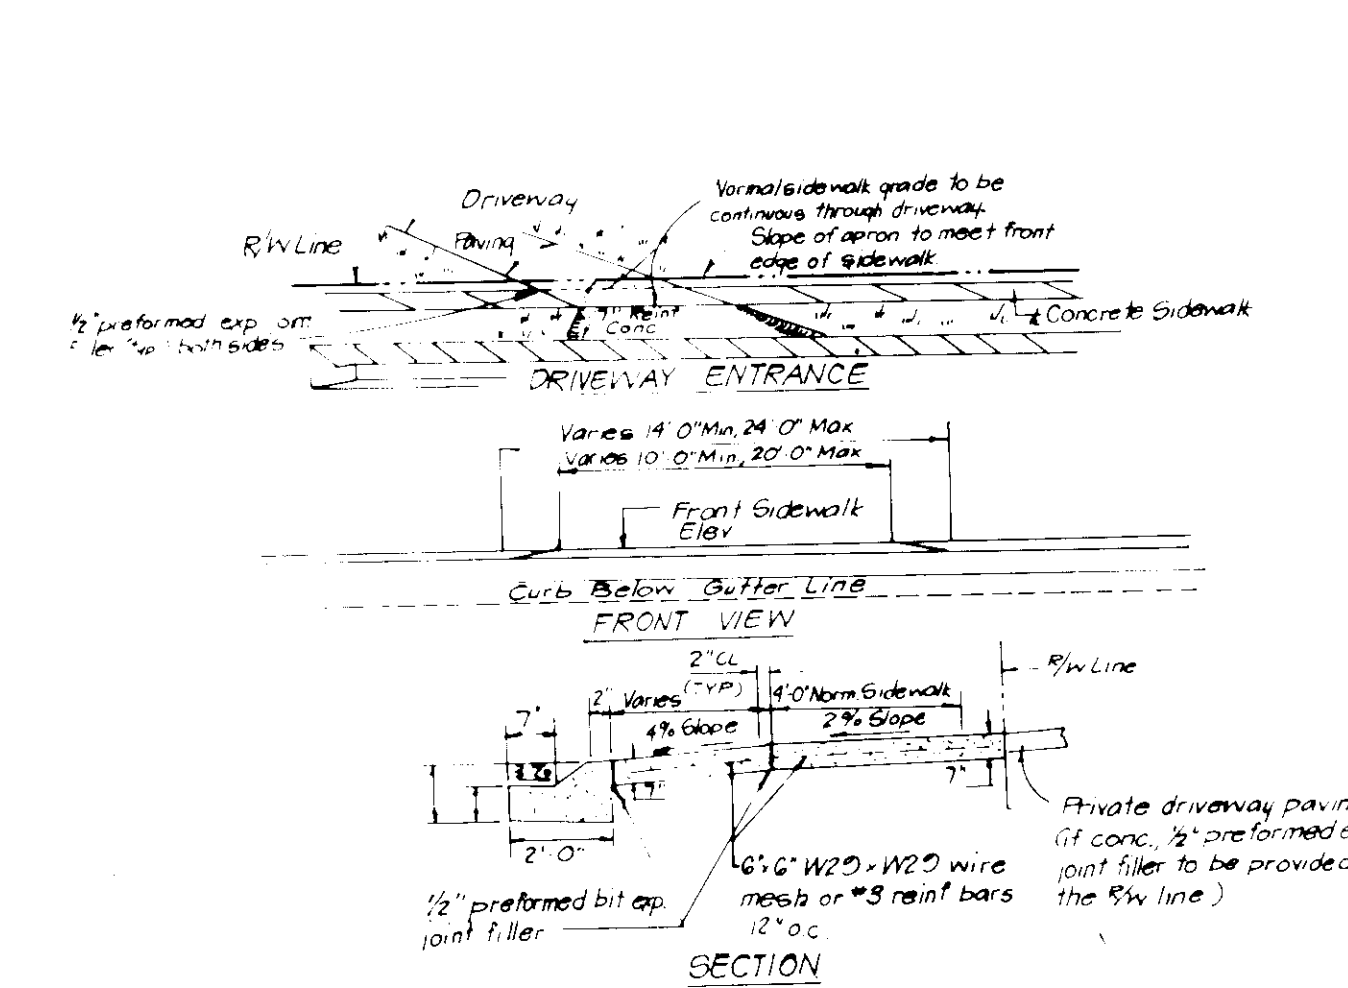 Driveway
Paving
R/W Line
Normal sidewalk grade to be
continuous through driveway.
Slope of apron to meet front
edge of sidewalk
1/2" preformed exp
both sides
7" Reinf
Conc
Concrete Sidewalk
DRIVEWAY ENTRANCE
Varies 14'-0" Min, 24'-0" Max
Varies 10'-0" Min, 20'-0" Max
Front Sidewalk
Elev
Curb Below Gutter Line
FRONT VIEW
2" CL
(TYP)
R/W Line
2"
Varies
4'-0" Norm. Sidewalk
7"
4% Slope
2% Slope
7"
7"
2'-0"
Private driveway
(if conc., 1/2" preformed
joint filler to be provided
the R/W line)
6"x6" W29xW29 wire
mesh or #3 reinf bars
12" o.c.
1/2" preformed bit exp.
joint filler
SECTION